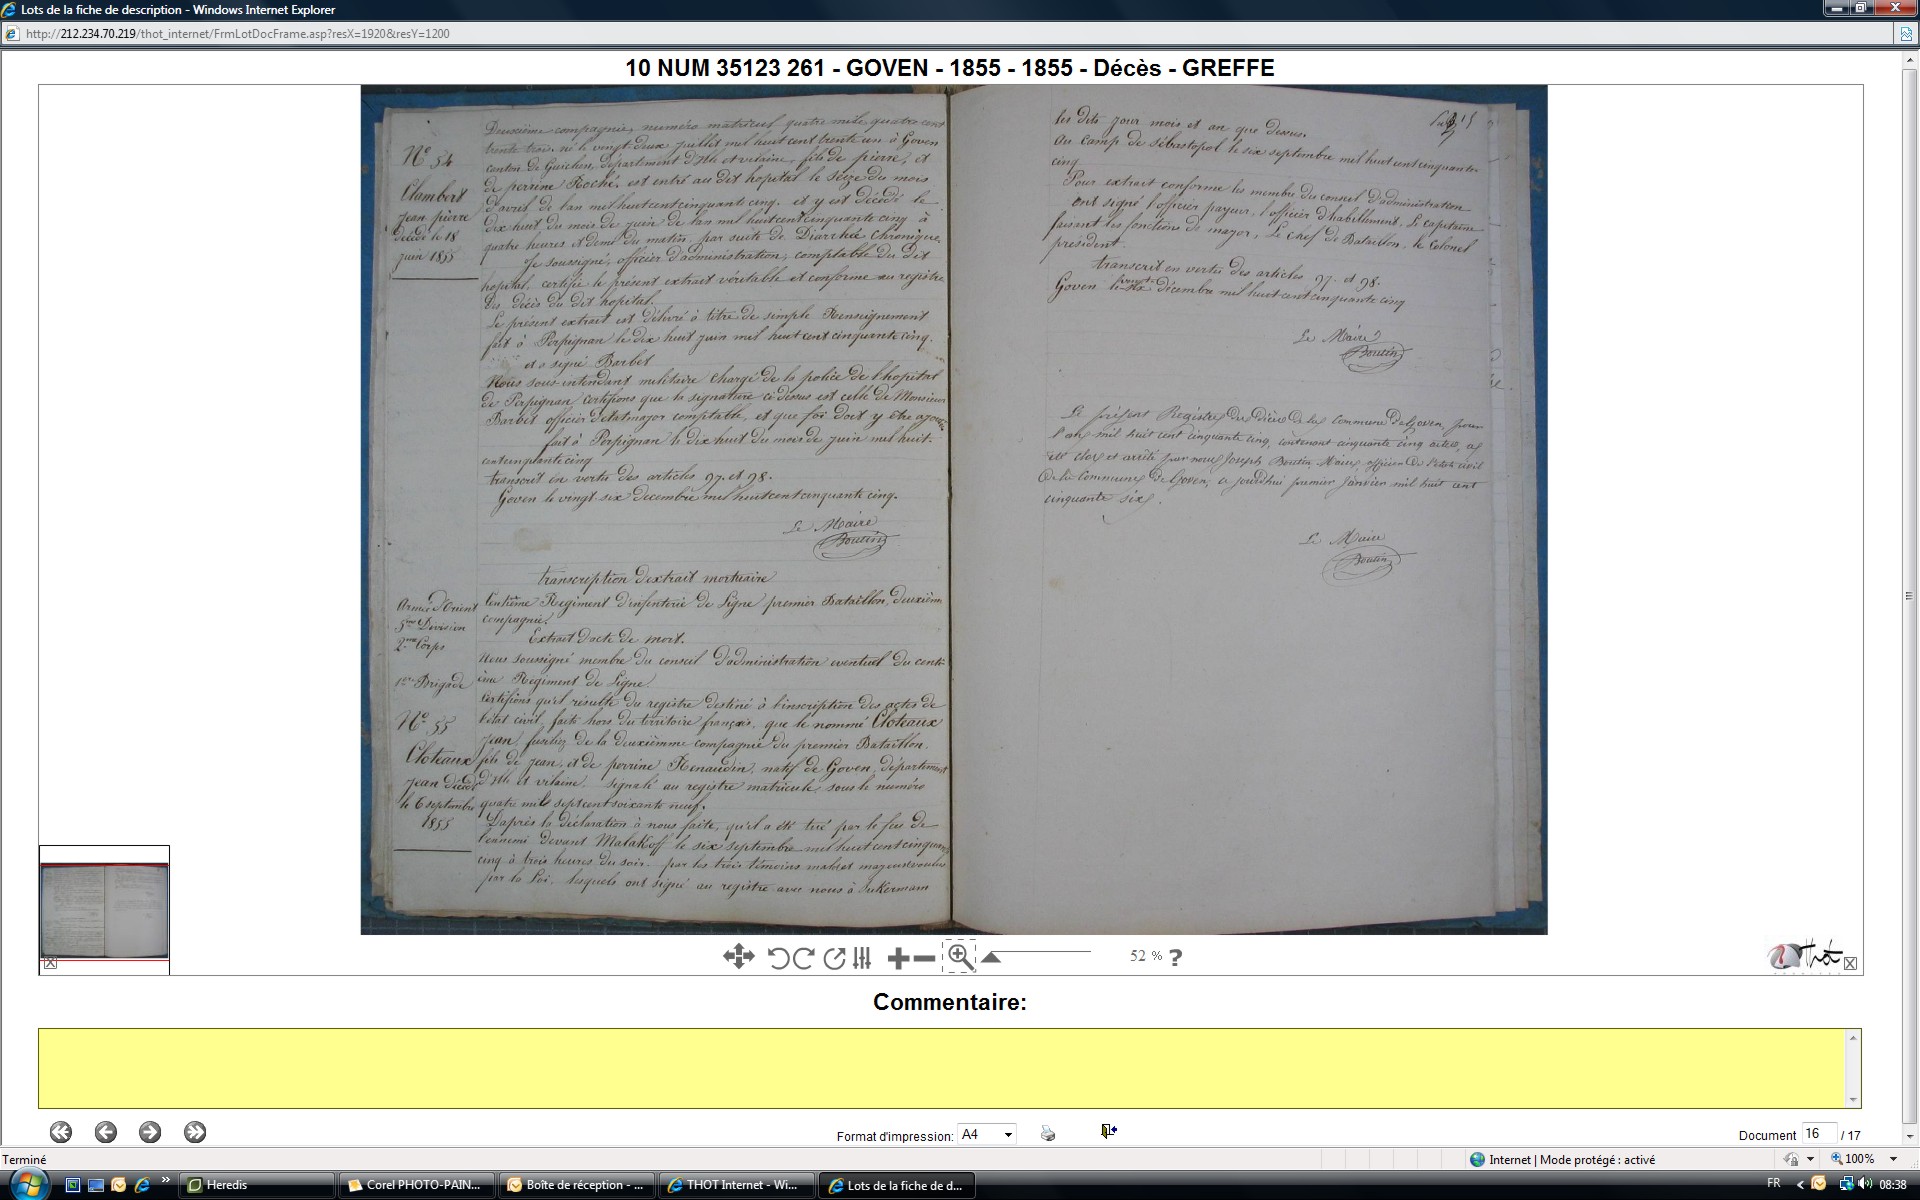 Lots de la fiche de description - Windows Internet Explorer
http://212.234.70.219/thot_internet/FrmLotDocFrame.asp?resX=1920&resY=1200
10 NUM 35123 261 - GOVEN - 1855 - 1855 - Décès - GREFFE
Deuxième compagnie, numéro matricul quatre mile quatre cent
trente trois. né le vingt deux juillet mil huit cent trente un à Goven
canton de Guichen, département d'Ille et vilaine, fils de pierre, et
de perrine Roché. est entré au dit hopital le seize du mois
d'avril de lan mil huit cent cinquante cinq. et y est décédé le
dix huit du mois de juin de lan mil huit cent cinquante cinq à
quatre heures et demi du matin, par suite de Diarhée chronique.
Je soussigné, officier d'administration, comptable du dit
hopital, certifie le présent extrait véritable et conforme au registre
des décès du dit hopital.
Le présent extrait est délivré à titre de simple Renseignement
fait à Perpignan le dix huit juin mil huit cent cinquante cinq.
et a signé Barbet
Nous sous-intendant militaire chargé de la police de l'hopital
de Perpignan certifions que la signature ci-dessus est celle de Monsieur
Barbet officier d'etat major comptable, et que foi doit y être
fait à Perpignan le dix huit du mois de juin mil huit
cent cinquante cinq
transcrit en vertu des articles 97. et 98.
Goven le vingt six decembre mil huit cent cinquante cinq.
Le Maire
Boutin
N° 54
Clambert
jean pierre
décédé le 18
juin 1855
transcription d'extrait mortuaire
Armée d'Orient
5me Division
2me Corps
1re Brigade
Centième Regiment d'infenterie de Ligne premier Bataillon, deuxième
compagnie.
Extrait d'acte de mort.
Nous soussigné membre du conseil d'administration eventuel du cent-
ième Régiment de Ligne.
Certifions qu'il résulte du registre destiné à l'inscription des actes de
l'état civil, faits hors du territoire français, que le nommé Cloteaux
Jean, fusilier de la deuxièmme compagnie du premier Bataillon,
fils de jean, et de perrine Renaudin, natif de Goven, département
d'Ille et vilaine, signalé au registre matricule sous le numéro
quatre mile sept cent soixante neuf.
D'après la déclaration à nous faite, qu'il a été tué par le feu de
l'ennemi devant Malakoff le six septembre mil huit cent cinquante
cinq à trois heures du soir par les trois témoins males et majeurs voulus
par la Loi, lesquels ont signé au registre avec nous à Inkermann
N° 55
Cloteaux
Jean décédé
le 6 septembre
1855
les dits jour mois et an que dessus.
Au camp de sébastopol le six septembre mil huit cent cinquante-
cinq
Pour extrait conforme les membre du conseil d'administration
ont signé l'officier payeur, l'officier d'habillement, Le capitaine
faisant les fonctions de major, Le chef de Bataillon, le Colonel
président.
transcrit en vertu des articles 97. et 98.
Goven le décembre mil huit cent cinquante cinq
Le Maire
Boutin
Le présent Registre des Décès de la Commune de Goven, pour
l'an mil huit cent cinquante cinq, contenant cinquante cinq actes, a
été clos et arrêté par nous Joseph Boutin Maire, officier de l'état civil
de la Commune de Goven, ce jourd'hui premier janvier mil huit cent
cinquante six.
Le Maire
Boutin
52 % ?
Thot
Commentaire:
Format d'impression: A4
Document 16 / 17
Terminé
Internet | Mode protégé : activé
100%
Heredis
Corel PHOTO-PAIN...
Boîte de réception - ...
THOT Internet - Wi...
Lots de la fiche de d...
FR
08:38